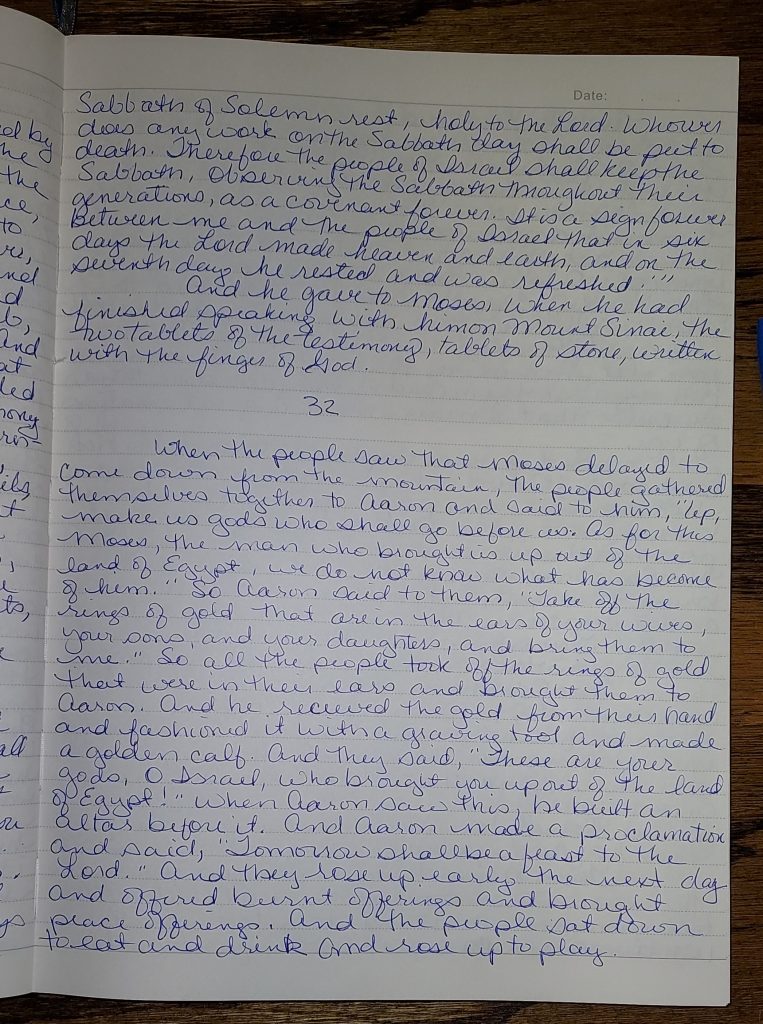 Date:
Sabbath of Solemn rest, holy to the Lord. Whoever
does any work on the Sabbath day shall be put to
death. Therefore the people of Israel shall keep the
Sabbath, observing the Sabbath throughout their
generations, as a covenant forever. It is a sign forever
between me and the people of Israel that in six
days the Lord made heaven and earth, and on the
seventh day he rested and was refreshed.'"
And he gave to Moses, when he had
finished speaking with him on Mount Sinai, the
two tablets of the testimony, tablets of stone, written
with the finger of God.
32
When the people saw that Moses delayed to
come down from the mountain, the people gathered
themselves together to Aaron and said to him, "Up,
make us gods who shall go before us. As for this
Moses, the man who brought us up out of the
land of Egypt, we do not know what has become
of him." So Aaron said to them, "Take off the
rings of gold that are in the ears of your wives,
your sons, and your daughters, and bring them to
me." So all the people took off the rings of gold
that were in their ears and brought them to
Aaron. And he recieved the gold from their hand
and fashioned it with a graving tool and made
a golden calf. And they said, "These are your
gods, O Israel, who brought you up out of the land
of Egypt!" When Aaron saw this, he built an
altar before it. And Aaron made a proclamation
and said, "Tomorrow shall be a feast to the
Lord." And they rose up early the next day
and offered burnt offerings and brought
peace offerings. And the people sat down
to eat and drink and rose up to play.